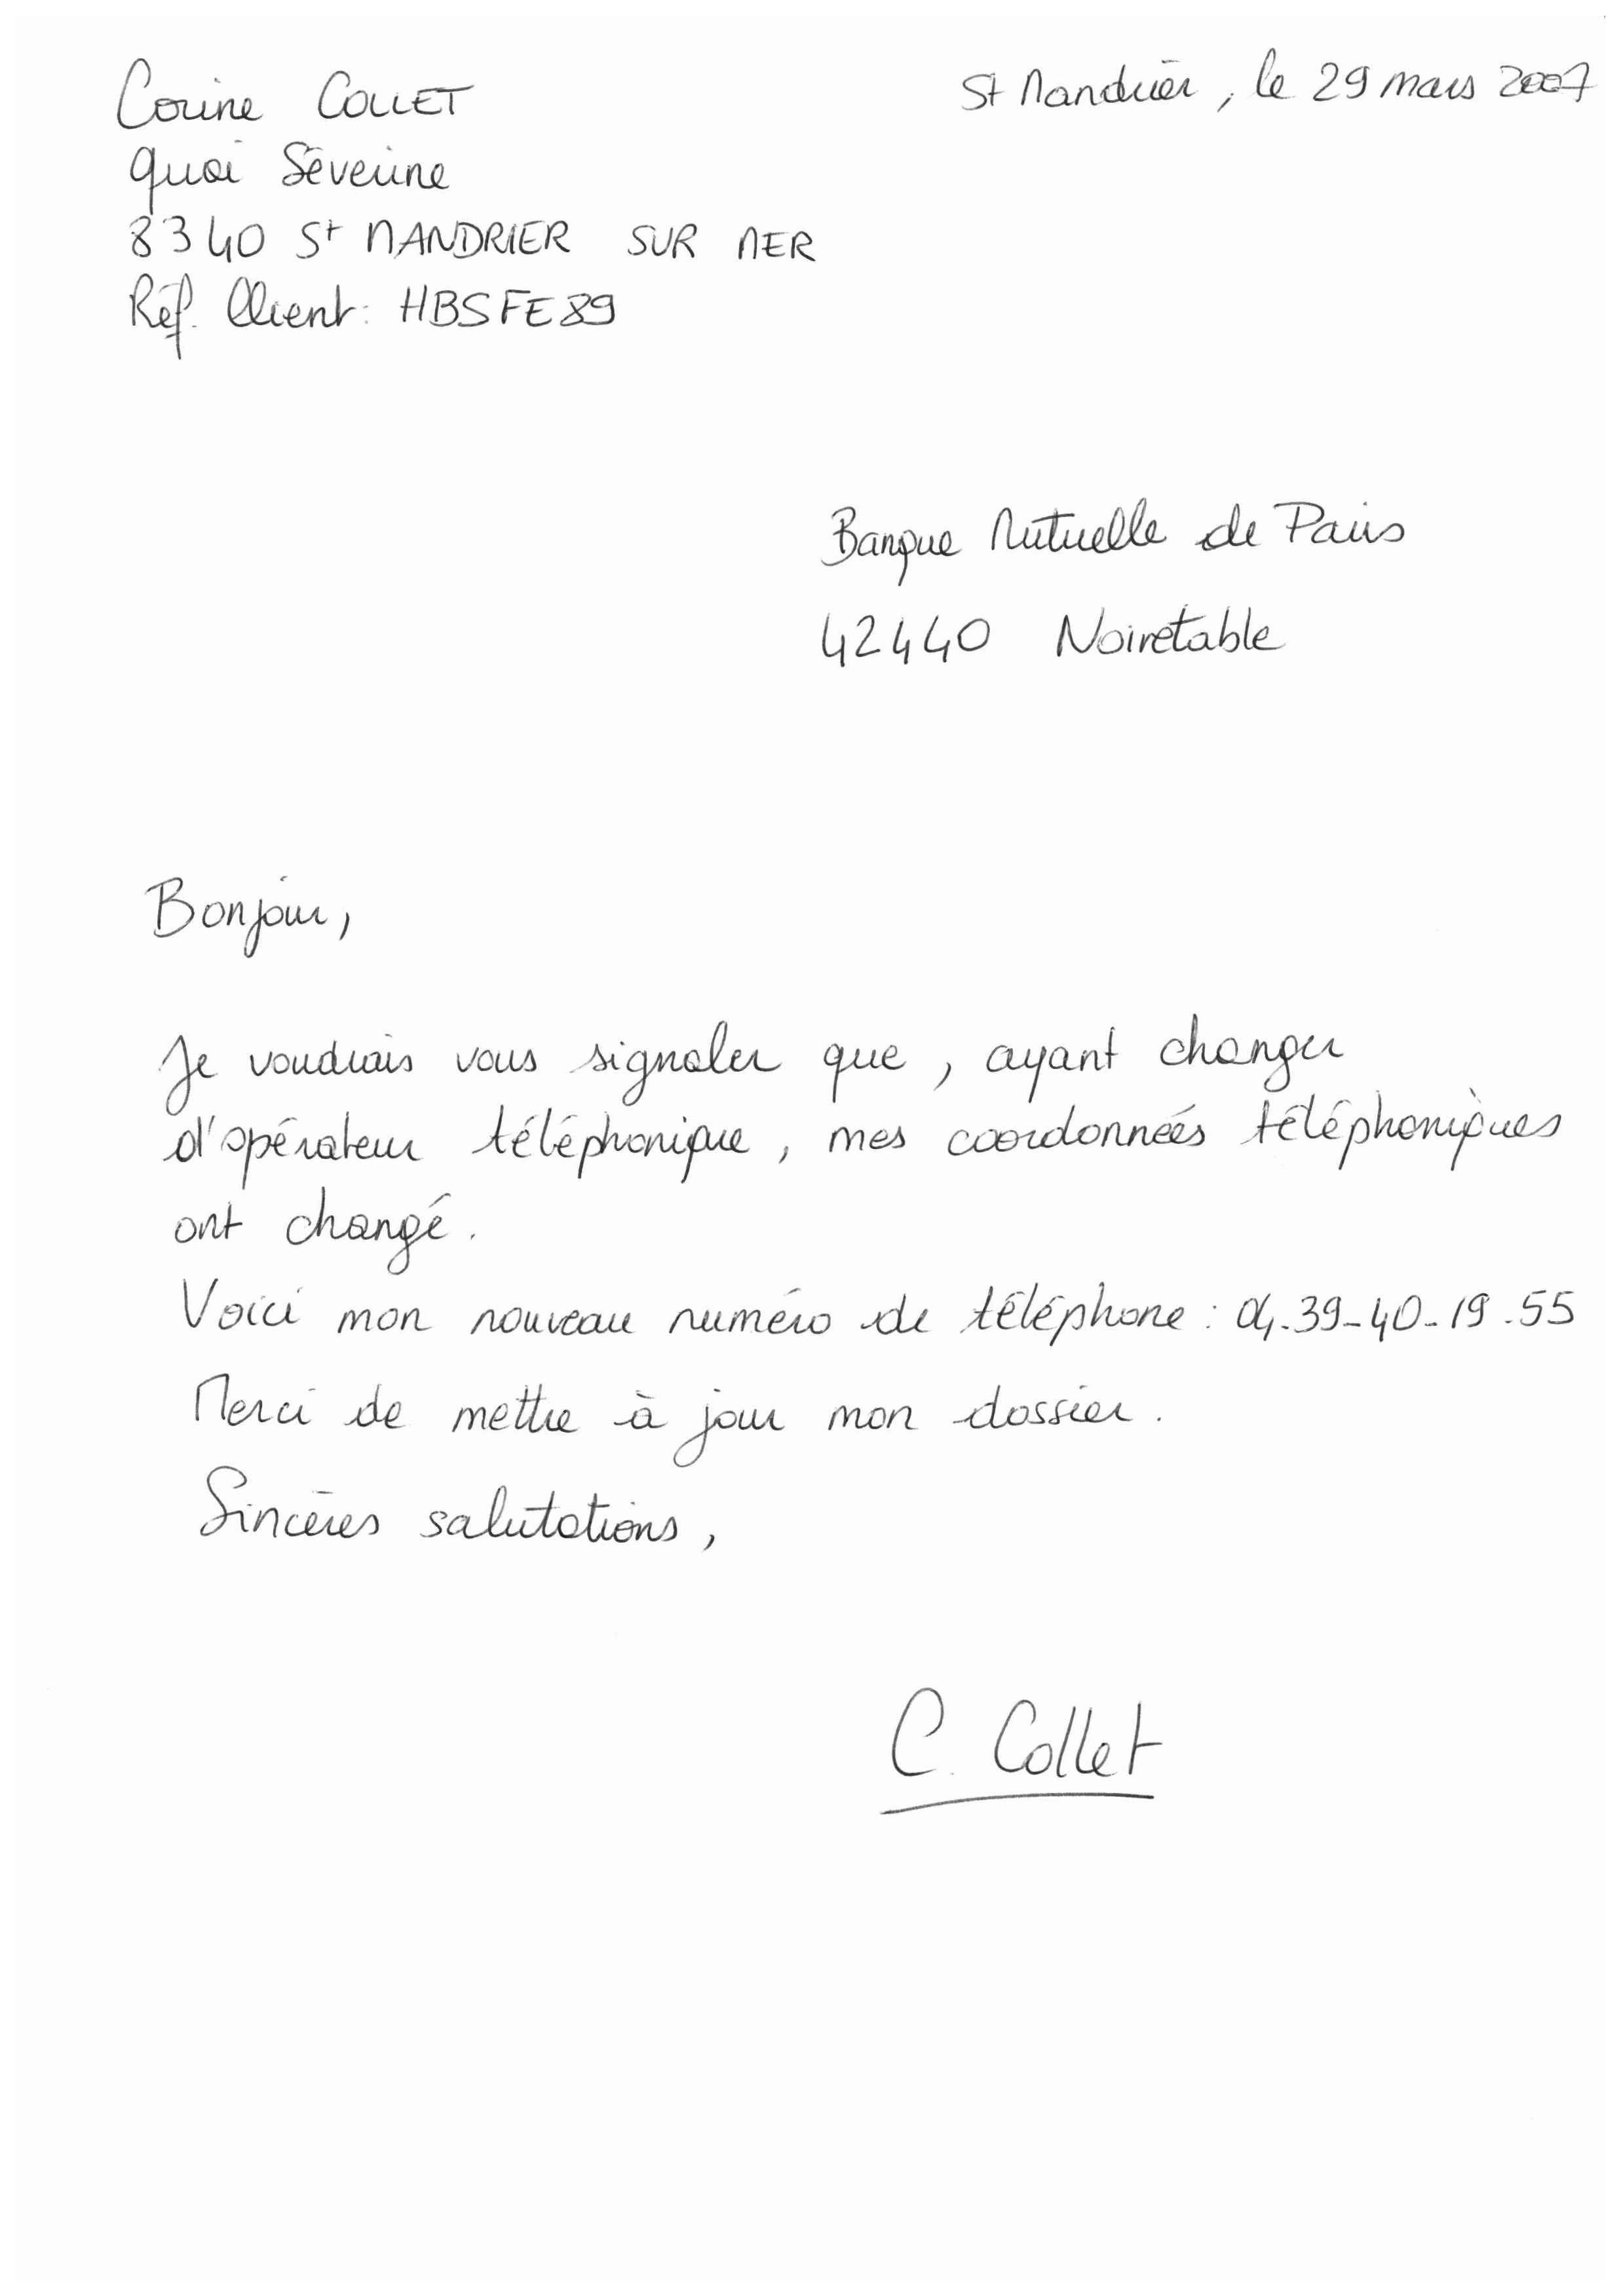 Corine COLLET
St Mandrier, le 29 mars 2007
quai Séverine
8340 St MANDRIER SUR MER
Réf. Client: HBSFE89
Banque Mutuelle de Paris
42440 Noirétable
Bonjour,
Je voudrais vous signaler que, ayant changer
d'opérateur téléphonique, mes coordonnées téléphoniques
ont changé.
Voici mon nouveau numéro de téléphone : 04-39-40-19-55
Merci de mettre à jour mon dossier.
Sincères salutations,
C. Collet